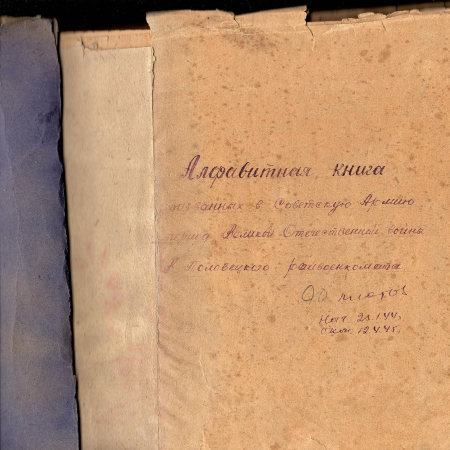 Алфавитная книга
призванных в Советскую Армию
период Великой Отечественной войны
Половецкого райвоенкомата
Нач. 21.1.44,
Окон. 12.4.4г.